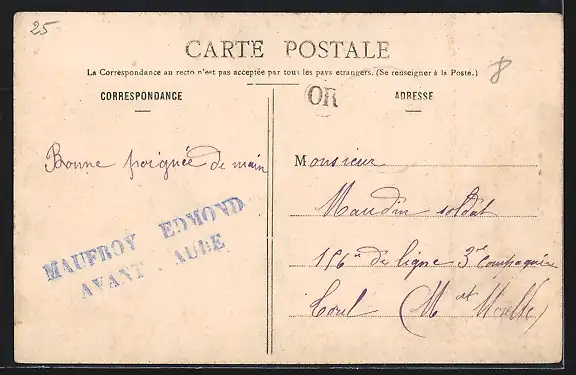 25
CARTE POSTALE
La Correspondance au recto n'est pas acceptée par tous les pays etrangers. (Se renseigner à la Poste.)
CORRESPONDANCE
OR
ADRESSE
Bonne poignée de main
MAUFROY EDMOND
AVANT . AUBE
Monsieur
Maudin soldat
156e de ligne 3e Compagnie
Toul (M et Mlle)